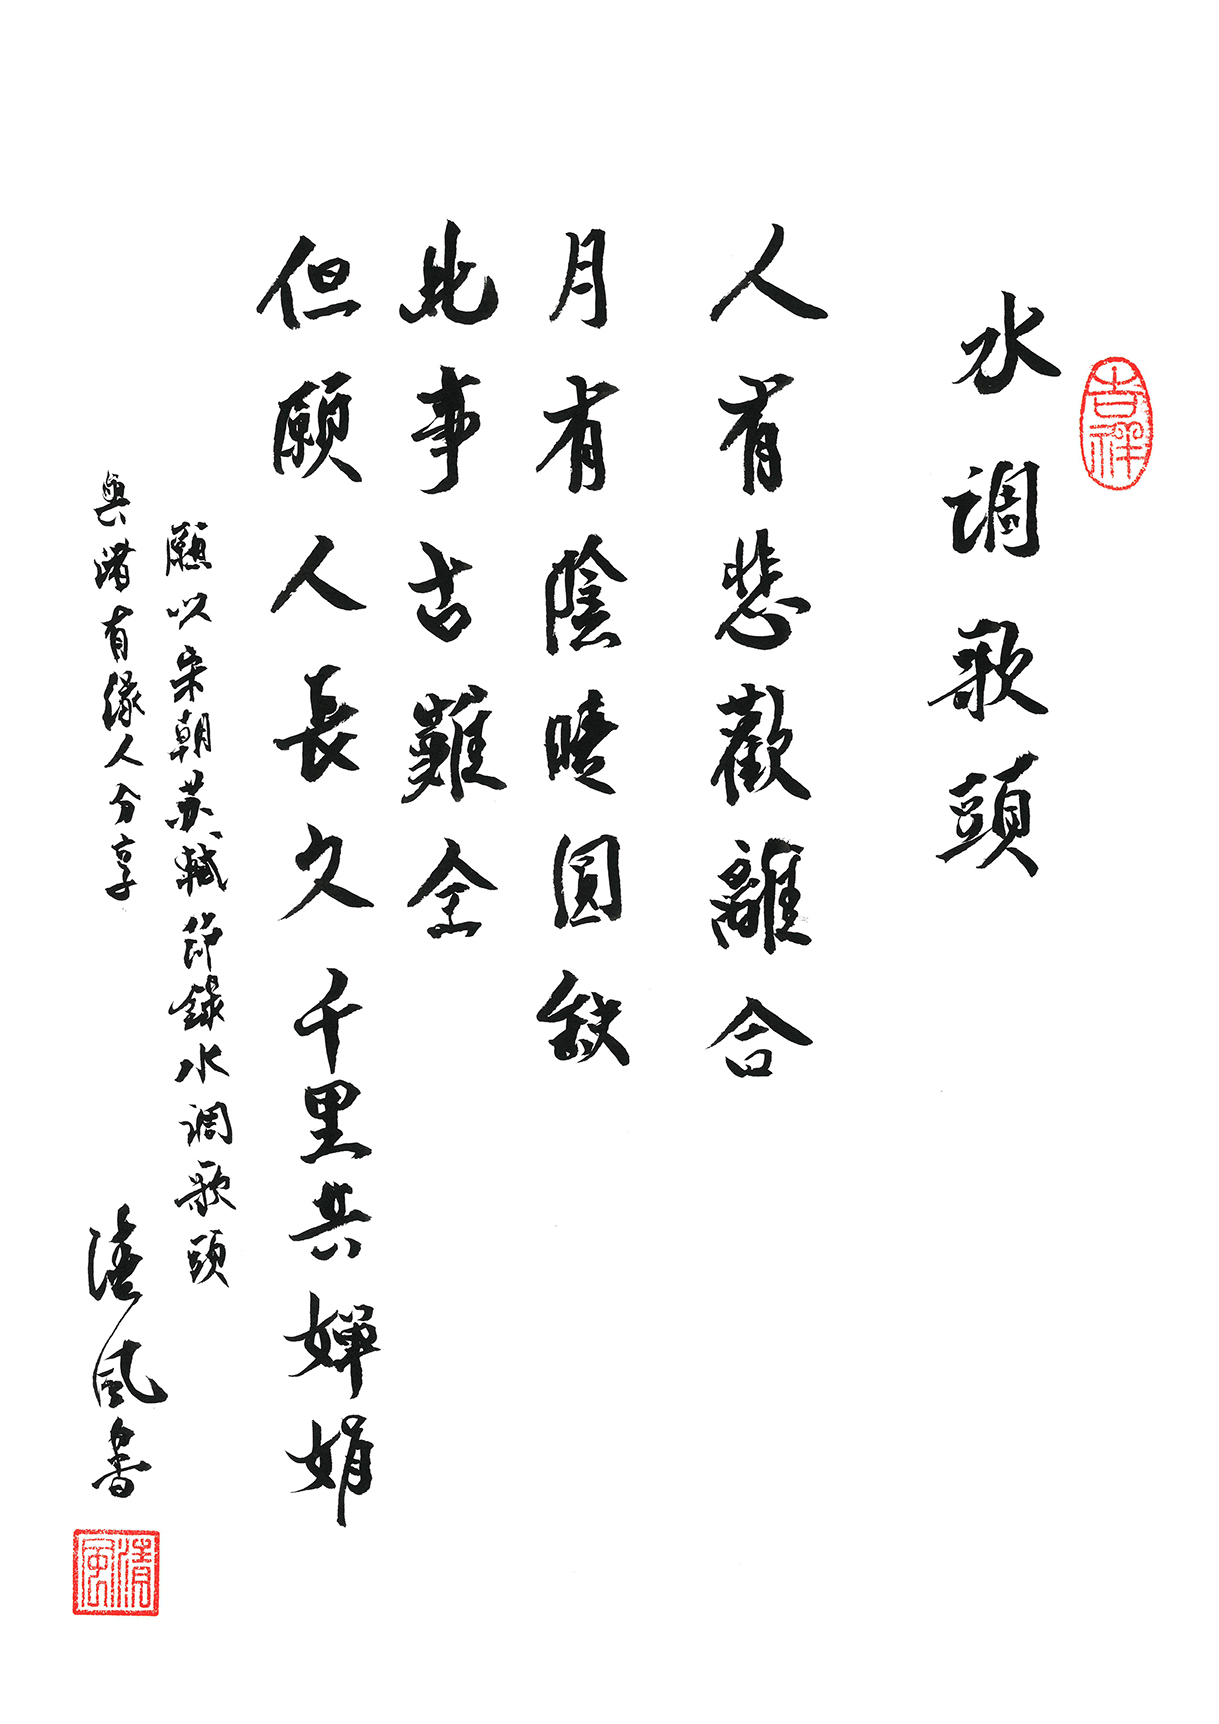 吉祥
水调歌頭
人有悲歡離合
月有陰晴圓缺
此事古難全
但願人長久千里共嬋娟
願以宋朝苏軾節録水调歌頭
與諸有緣人分享
清風書
清風